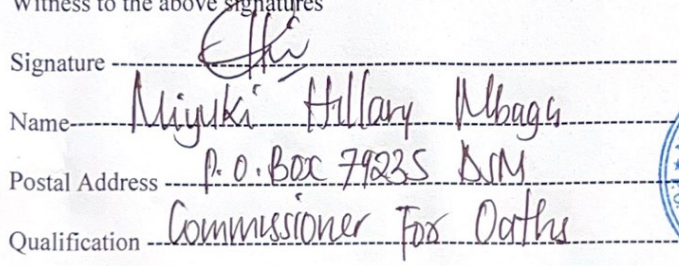 Witness to the above signatures
Signature
Name Miyuki Hillary Mbaga
Postal Address P.O.Box 79235 DSM
Qualification Commissioner For Oaths